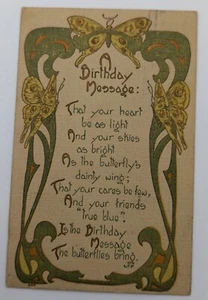 A
Birthday
Message:
That your heart
be as light
And your skies
as bright
As the butterfly's
dainty wing;
That your cares be few,
And your friends
"true blue",
Is the Birthday
Message
The butterflies bring.